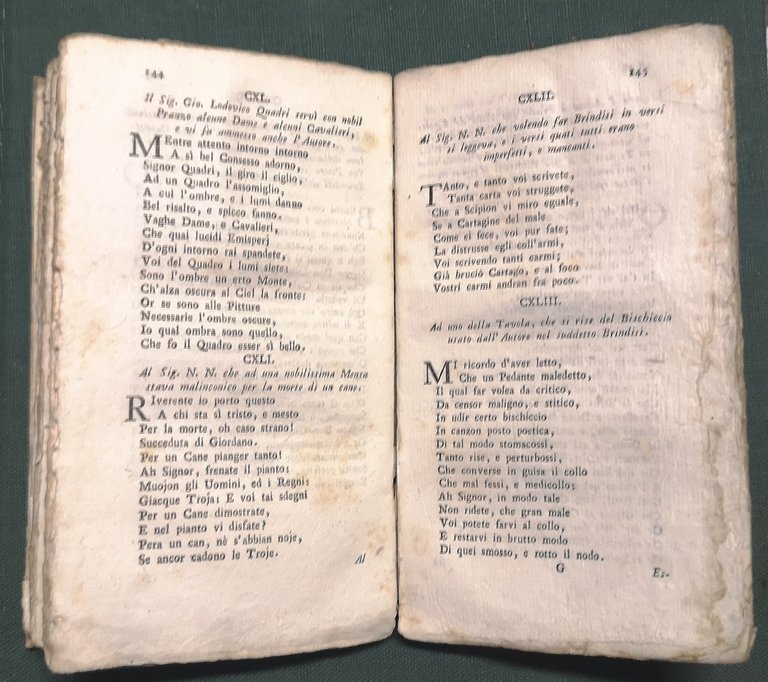 144
CXL.
Il Sig. Gio. Lodovico Quadri servì con nobil
Pranzo alcune Dame e alcuni Cavalieri,
e vi fu ammesso anche l'Autore.
MEntre attento intorno intorno
A sì bel Consesso adorno,
Signor Quadri, il giro il ciglio,
Ad un Quadro l'assomiglio,
A cui l'ombre, e i lumi danno
Bel risalto, e spicco fanno.
Vaghe Dame, e Cavalieri,
Che quai lucidi Emisperj
D'ogni intorno rai spandete,
Voi del Quadro i lumi siete:
Sono l'ombre un erto Monte,
Ch'alza oscura al Ciel la fronte:
Or se sono alle Pitture
Necessarie l'ombre oscure,
Io qual ombra sono quello,
Che fo il Quadro esser sì bello.
CXLI.
Al Sig. N. N. che ad una nobilissima Mensa
stava malinconico per la morte di un cane.
RIverente io porto questo
A chi sta sì tristo, e mesto
Per la morte, oh caso strano!
Succeduta di Giordano.
Per un Cane pianger tanto!
Ah Signor, frenate il pianto:
Muojon gli Uomini, ed i Regni:
Giacque Troja: E voi tai sdegni
Per un Cane dimostrate,
E nel pianto vi disfate?
Pera un can, nè s'abbian noje,
Se ancor cadono le Troje.
Al
145
CXLII.
Al Sig. N. N. che volendo far Brindisi in versi
si leggeva, e i versi quasi tutti erano
imperfetti, e mancanti.
TAnto, e tanto voi scrivete,
Tanta carta voi struggete,
Che a Scipion vi miro eguale,
Se a Cartagine del male
Come ei fece, voi pur fate;
La distrusse egli coll'armi,
Voi scrivendo tanti carmi;
Già bruciò Cartago, e al foco
Vostri carmi andran fra poco.
CXLIII.
Ad uno della Tavola, che si rise del Bischiccio
usato dall'Autore nel suddetto Brindisi.
MI ricordo d'aver letto,
Che un Pedante maledetto,
Il qual far volea da critico,
Da censor maligno, e stitico,
In udir certo bischiccio
In canzon posto poetica,
Di tal modo stomacossi,
Tanto rise, e perturbossi,
Che converse in guisa il collo
Che mal fessi, e medicollo;
Ah Signor, in modo tale
Non ridete, che gran male
Voi potete farvi al collo,
E restarvi in brutto modo
Di quei smosso, e rotto il nodo.
G
Es-